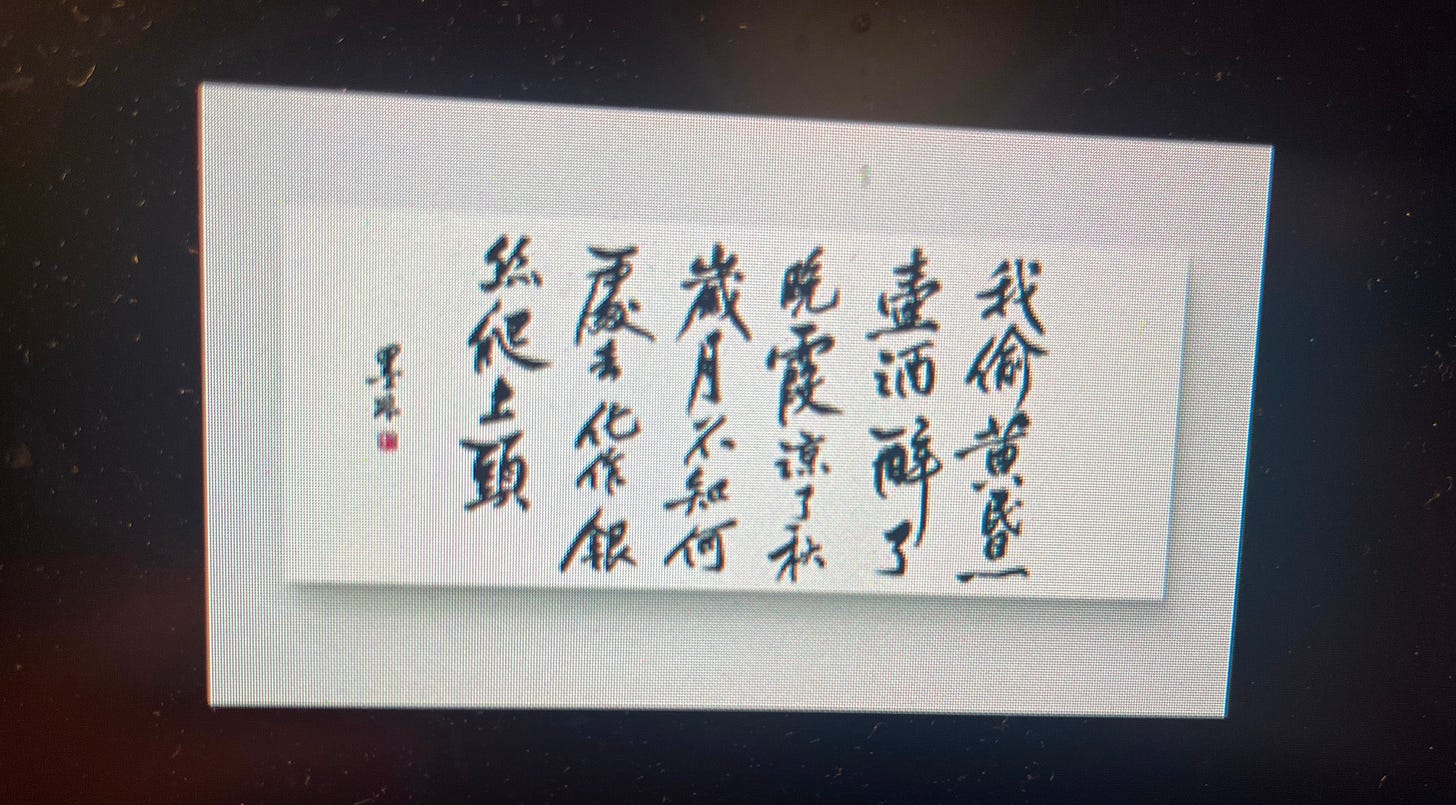 我偷黄昏一
壺酒醉了
晚霞凉了秋
歲月不知何
處去化作銀
絲爬上頭